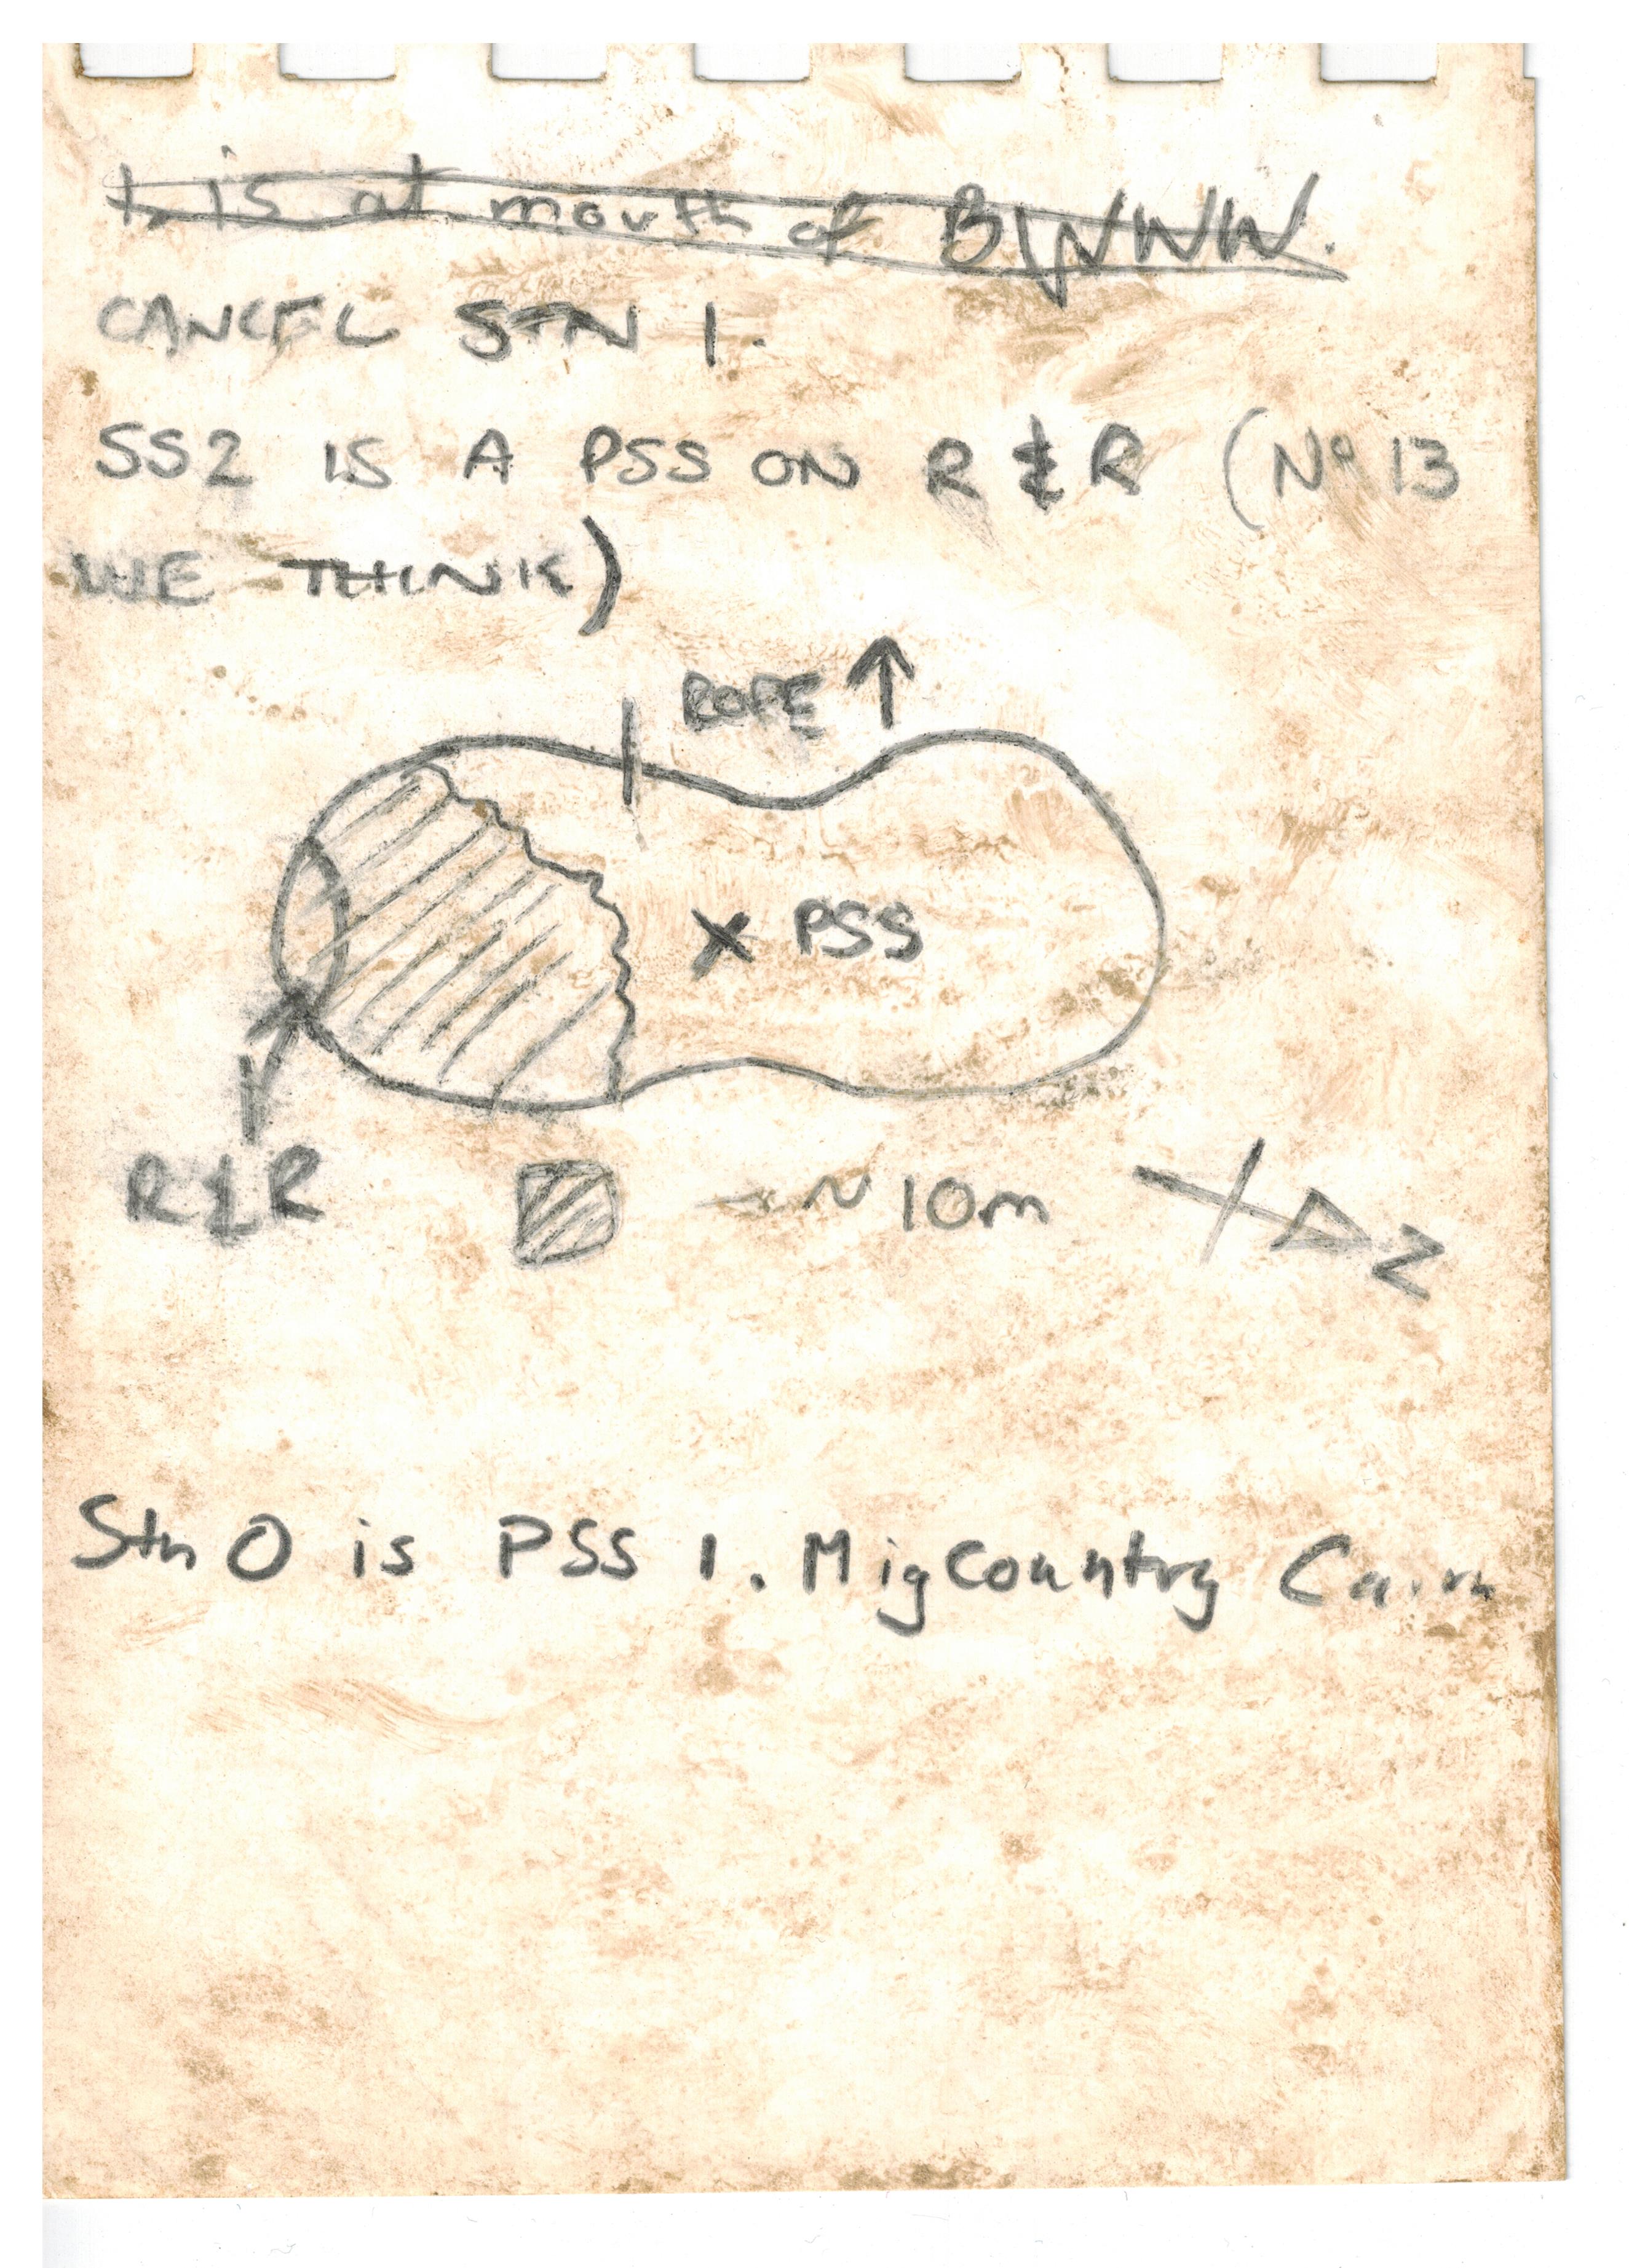 1 is at mouth of
CANCEL STN 1.
SS2 IS A PSS ON R & R (Nº 13
WE THINK)
ROPE
PSS
R & R
~ 10m
N
Stn 0 is PSS 1. Mig Country Cairn